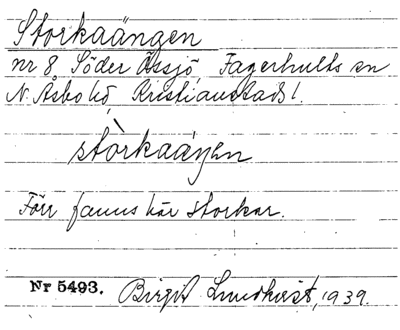 Storkaängen
nr 8 Söder Åssjö, Fagerhults sn
N. Åsbo hd, Kristianstads l.
stòrkaáŋen
Förr fanns här storkar.
Nr 5493. Birgit Lundkvist, 1939.